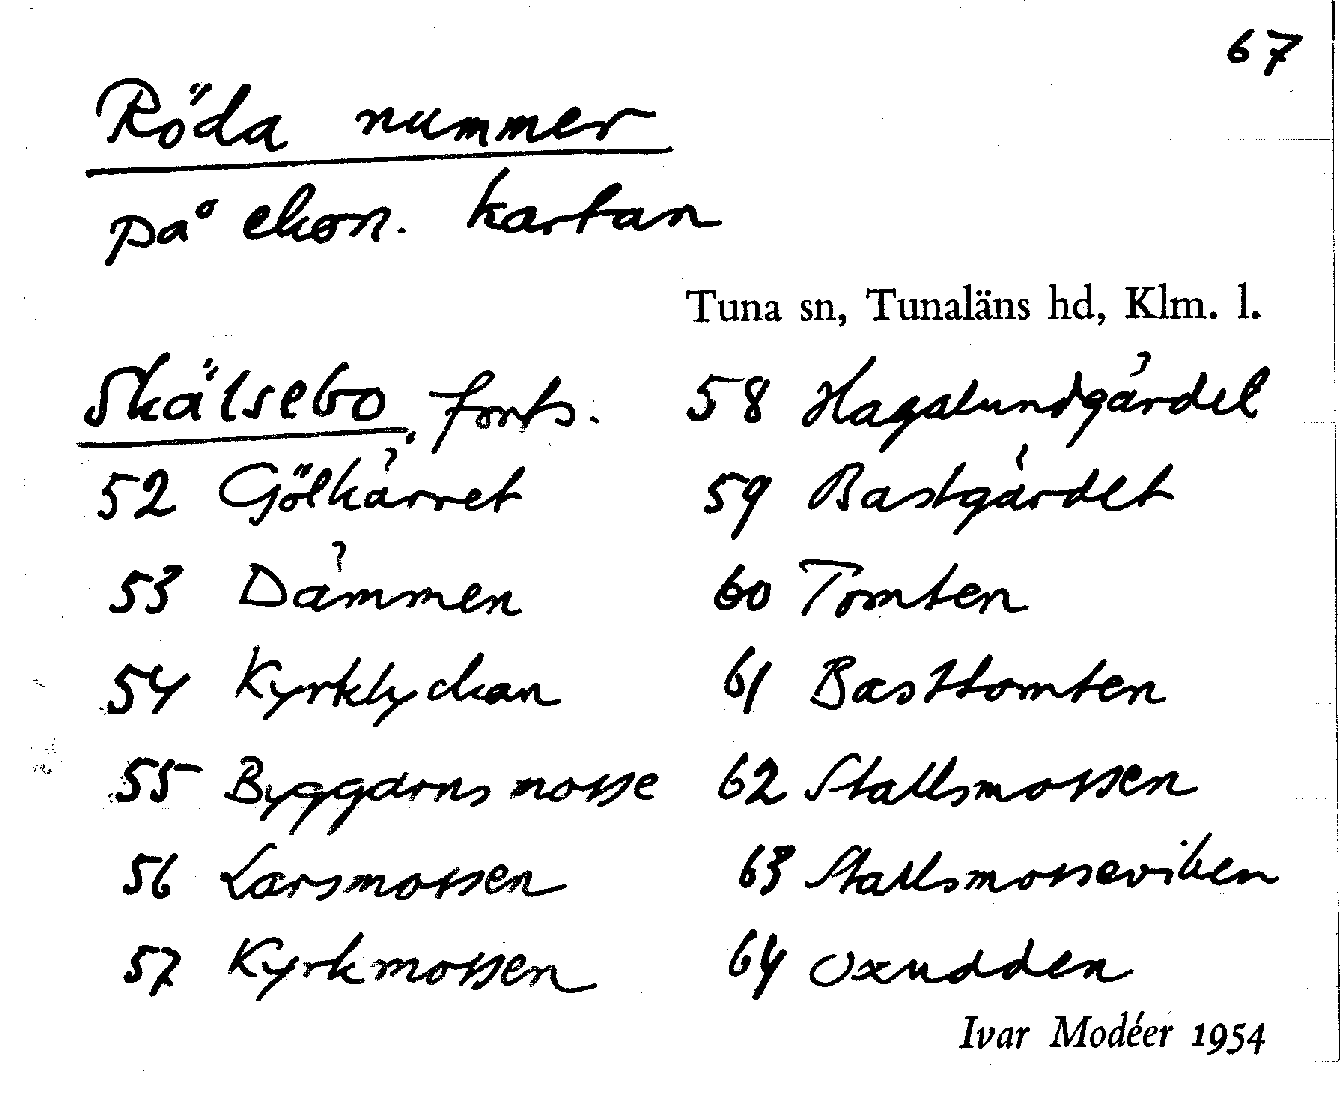 67
Röda nummer
på ekon. kartan
Tuna sn, Tunaläns hd, Klm. l.
Skälsebo, forts.
52 Gölkärret
53 Dämmen
54 Kyrklyckan
55 Byggarns mosse
56 Larsmossen
57 Kyrkmossen
58 Hagalundgärdet
59 Bastgärdet
60 Tomten
61 Basttomten
62 Stallsmossen
63 Stallsmosseviken
64 Oxudden
Ivar Modéer 1954